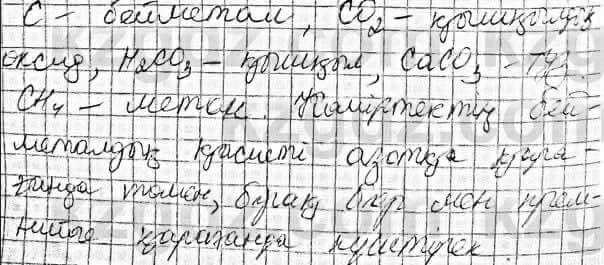 C – бейметал, CO₂ – қышқылдық
оксид, H₂CO₃ – қышқыл, CaCO₃ – тұз.
CH₄ – метан. Көміртектің бей-
металдық қасиеті азотқа қара-
ғанда төмен, бірақ бор мен крем-
нийге қарағанда күштірек.